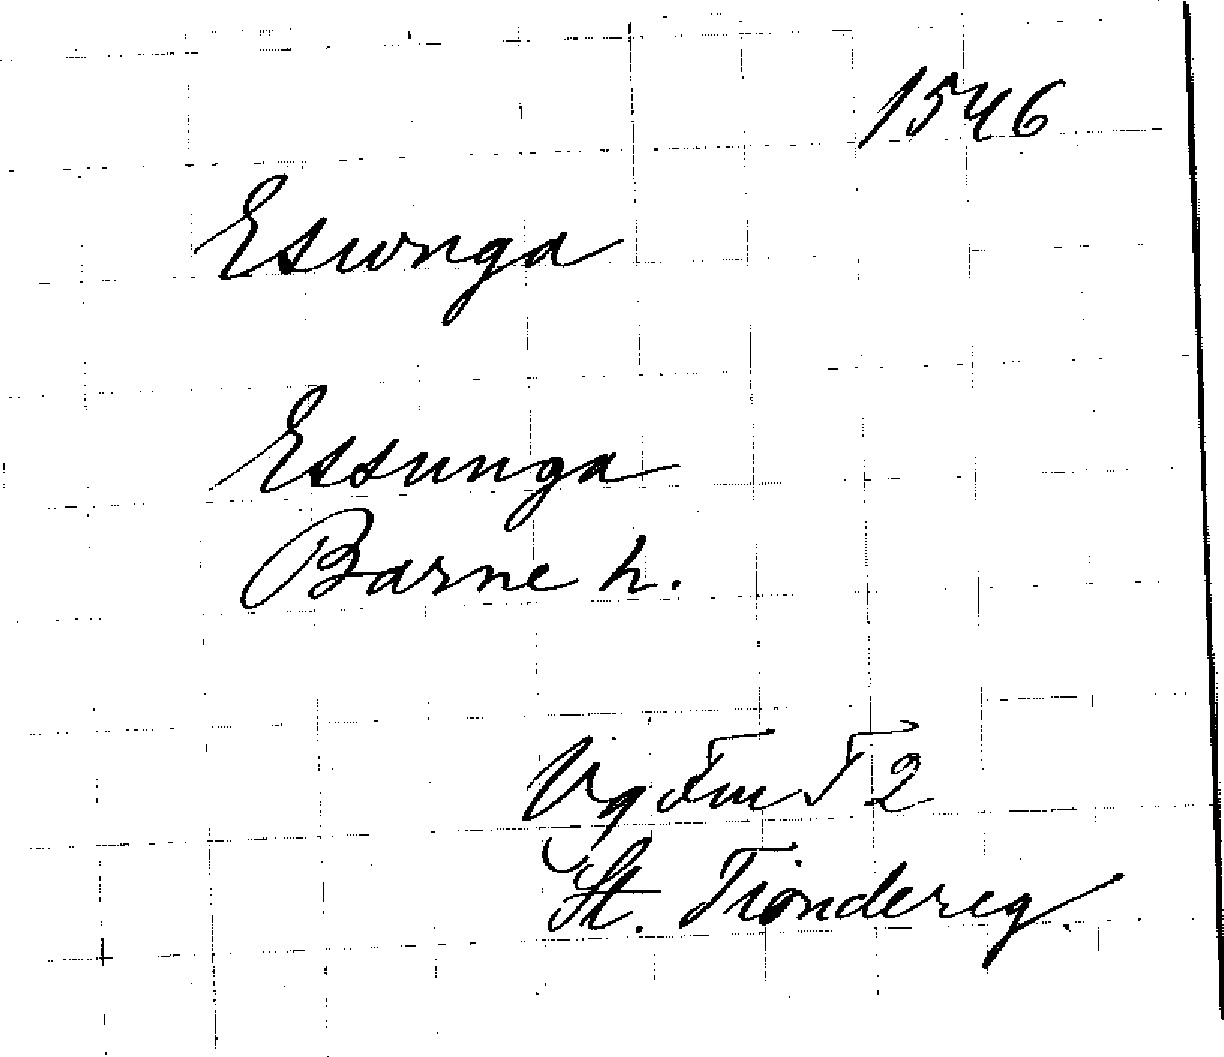 1546
Eswnga
Essunga
Barne h.
Vg Fm T 2
St. Tiondereg.